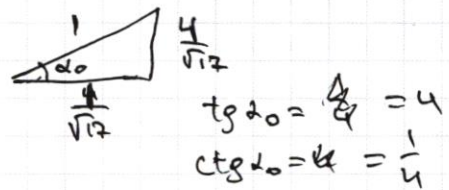 1
4/√17
α₀
1/√17
tg α₀ = = 4
ctg α₀ = = 1/4